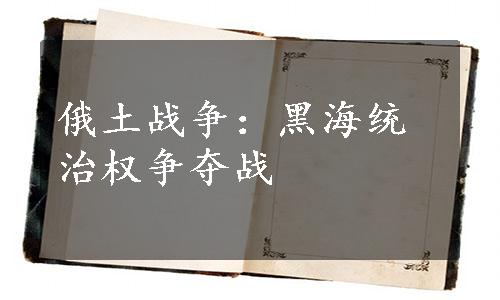 俄土战争：黑海统
治权争夺战